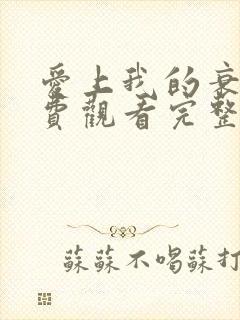 愛上我的衰
費觀看完整
蘇蘇不喝蘇打